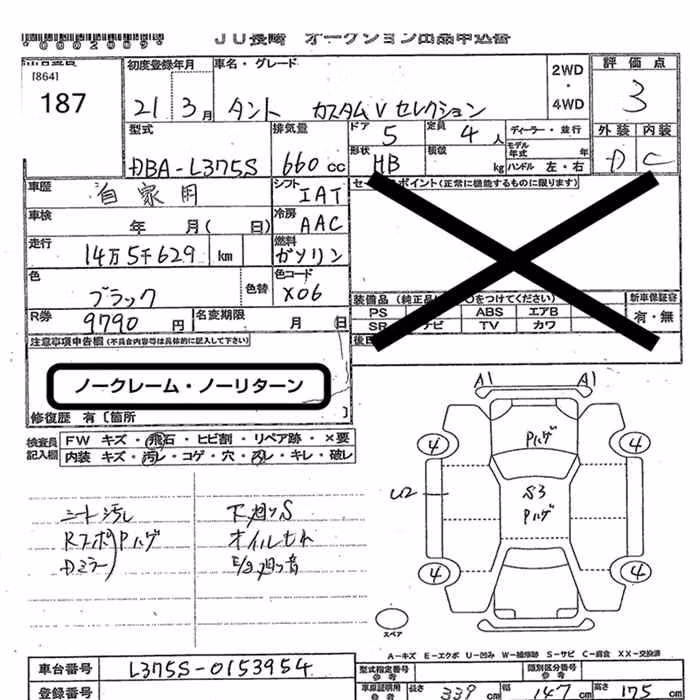 *0002009*
JU長崎 オークション出品申込書
[864]
187
初度登録年月
21 3月
車名・グレード
タント カスタムVセレクション
2WD
・
4WD
評価点
3
外装 内装
D C
型式
DBA-L375S
排気量
660 cc
ドア 5
定員 4人
ディーラー・並行
形状 HB
積載 kg
モデル年式 年
ハンドル 左・右
車歴 自家用
シフト IAT
セールスポイント(正常に機能するものに限ります)
車検 年 月( 日)
冷房 AAC
走行 14万5千629 km
燃料 ガソリン
色 ブラック
色替
色コード X06
装備品 (純正品に○をつけてください)
新車保証書
有・無
PS ABS エアB
SR ナビ TV カワ
R券 9790 円
名変期限 月 日
注意事項申告欄 (不具合内容等は具体的に記入して下さい)
ノークレーム・ノーリターン
修復歴 有〔箇所
検査員記入欄
FW キズ・飛石・ヒビ割・リペア跡・×要
内装 キズ・汚レ・コゲ・穴・スレ・キレ・破レ
シート汚れ
Rスポ Pハゲ
Dミラー
下廻りS
オイルもれ
E/g廻り音
A1 A1
4 4
Pハゲ
U2
S3
Pハゲ
4 4
スペア
A-キズ E-エクボ U-凹み W-補修跡 S-サビ C-腐食 XX-交換済
車台番号 L375S-0153954
登録番号
型式指定番号
参考
類別区分番号
参考
車庫証明用
参考
長さ 339 cm
幅 147 cm
高さ 175 cm